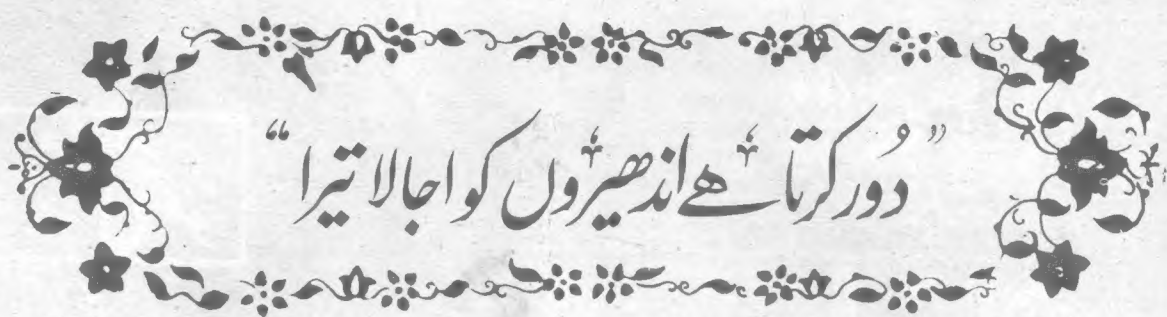 ”دُور کرتا ھے اندھیروں کو اجالا تیرا“